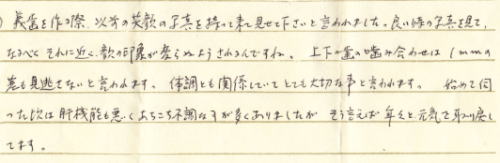 義歯を作る際、以前の笑顔の写真を持って来て見せて下さいと言われました。良い時の写真を見て、
なるべくそれに近く、顔の印象が変らぬようされるんですね。上下の歯の噛み合わせは1mmの
差も見逃せないと言われます。体調とも関係していてとても大切な事と言われます。始めて伺
った次は肝機能も悪くあちこち不調なすが多くありましたが そう言えば年々と元気で取り戻し
てます。